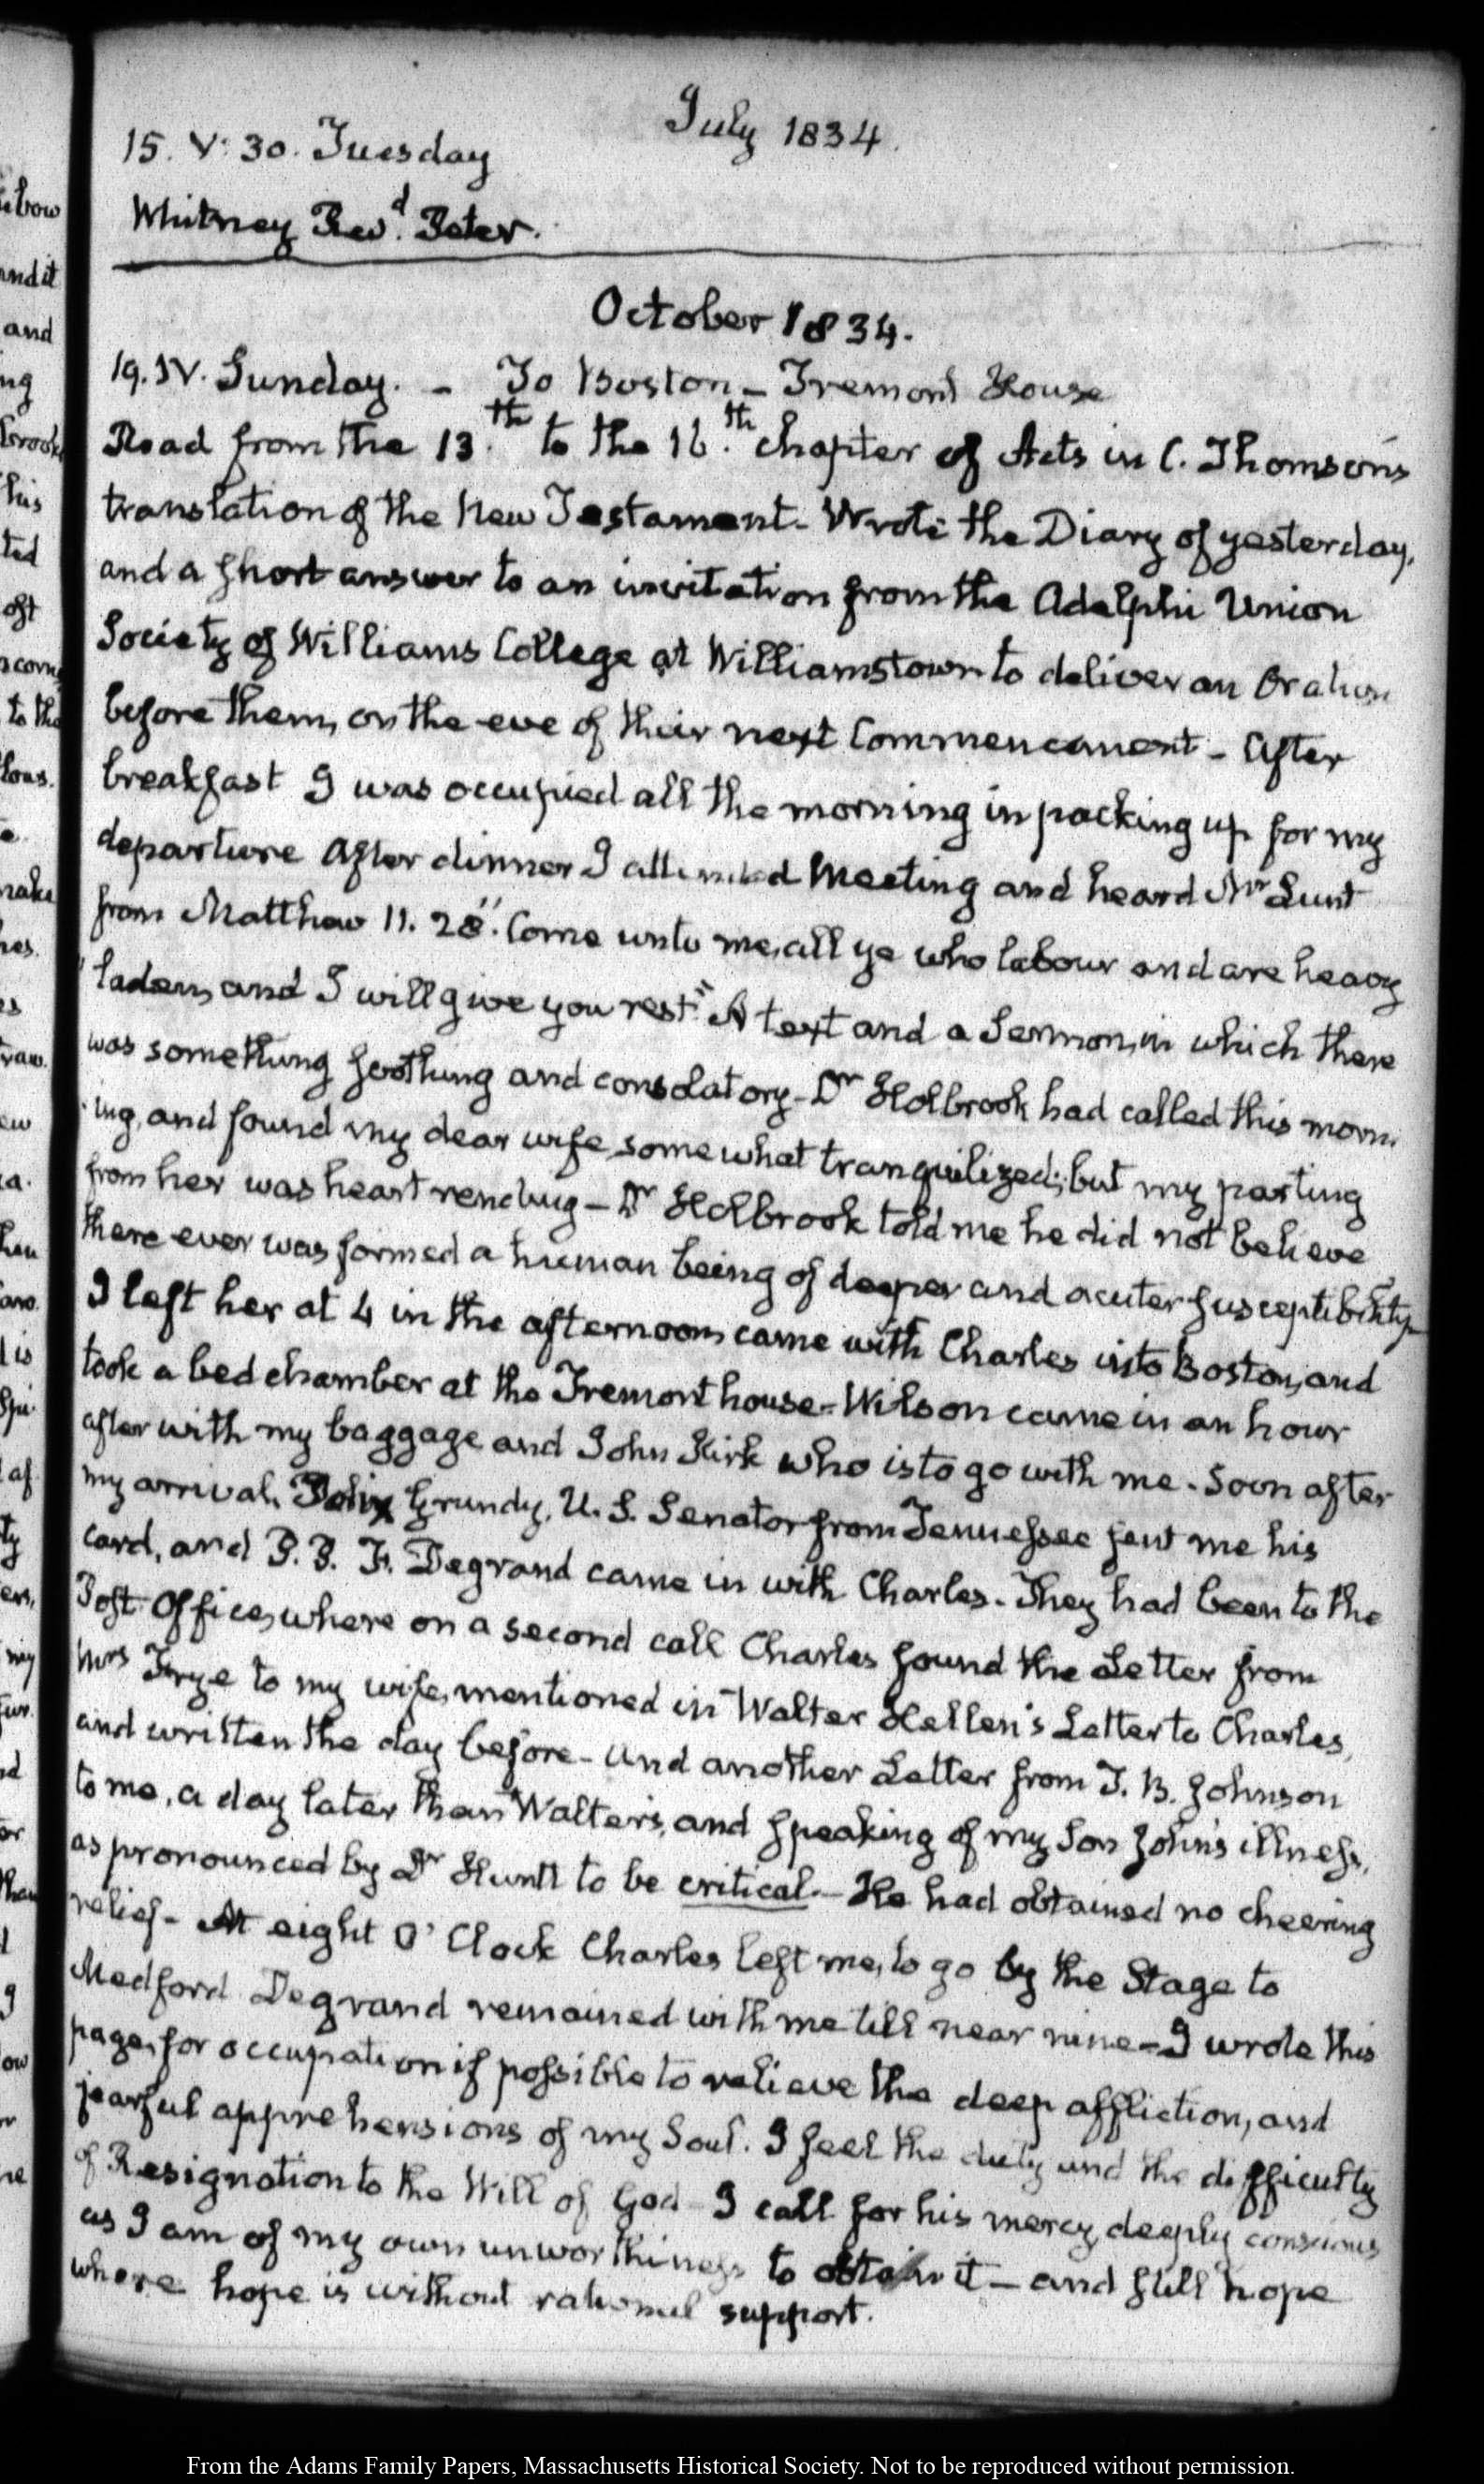 July 1834.
15. V: 30. Tuesday
Whitney Rev.d Peter.
October 1834.
19. IV. Sunday. - To Boston - Tremont House
Read from the 13.th to the 16.th chapter of Acts in C. Thomson's
translation of the New Testament - Wrote the Diary of yesterday,
and a short answer to an invitation from the Adelphi Union
Society of Williams College at Williamstown to deliver an Oration
before them, on the eve of their next Commencement - After
breakfast I was occupied all the morning in packing up for my
departure After dinner I attended Meeting and heard Mr Lunt
from Matthew 11. 28. "Come unto me, all ye who labour and are heavy
"laden, and I will give you rest." A text and a Sermon, in which there
was something soothing and consolatory - Dr Holbrook had called this morn-
-ing, and found my dear wife somewhat tranquilized; but my parting
from her was heart rending - Dr Holbrook told me he did not believe
there ever was formed a human being of deeper and acuter susceptibility -
I left her at 4 in the afternoon, came with Charles into Boston, and
took a bed chamber at the Tremont house - Wilson came in an hour
after with my baggage and John Kirk who is to go with me. Soon after
my arrival, Felix Grundy, U. S. Senator from Tennessee sent me his
card, and P. P. F. Degrand came in with Charles - They had been to the
Post Office, where on a second call Charles found the Letter from
Mrs Frye to my wife, mentioned in Walter Hellen's Letter to Charles,
and written the day before - And another Letter from T. B. Johnson
to me, a day later than Walter's, and speaking of my Son John's illness,
as pronounced by Dr Huntt to be critical. - He had obtained no cheering
relief - At eight O' Clock Charles left me, to go by the Stage to
Medford Degrand remained with me till near nine - I wrote this
page, for occupation if possible to relieve the deep affliction, and
fearful apprehensions of my Soul. I feel the duty and the difficulty
of Resignation to the Will of God - I call for his mercy, deeply conscious
as I am of my own unworthiness to obtain it - and still hope
where hope is without rational support.
From the Adams Family Papers, Massachusetts Historical Society. Not to be reproduced without permission.